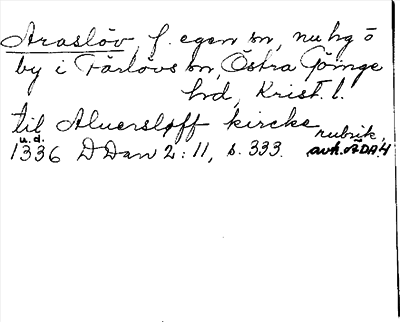 Araslöv, f. egen sn, nu hg o
by i Färlövs sn, Östra Göinge
hd, Krist. l.
til Aluersløff kircke rubrik,
u.d.
1336 DDan 2:11, s. 333. avh. ÄDA4